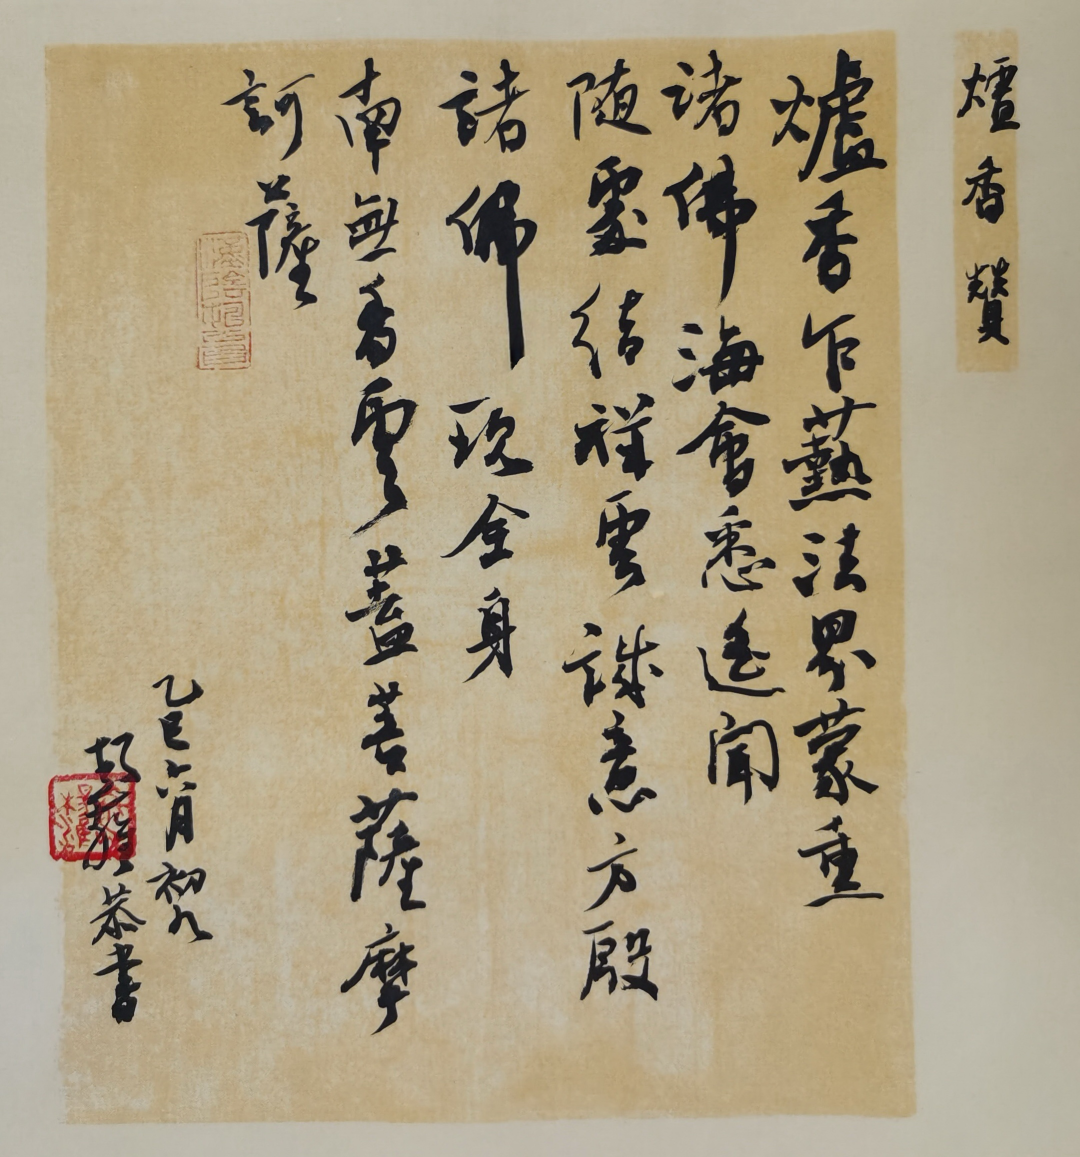 爐香賛
爐香乍爇法界蒙熏
诸佛海會悉遥聞
随處结祥雲誠意方殷
諸佛现全身
南無香雲蓋菩薩摩
訶薩
乙巳六月初九
恭書